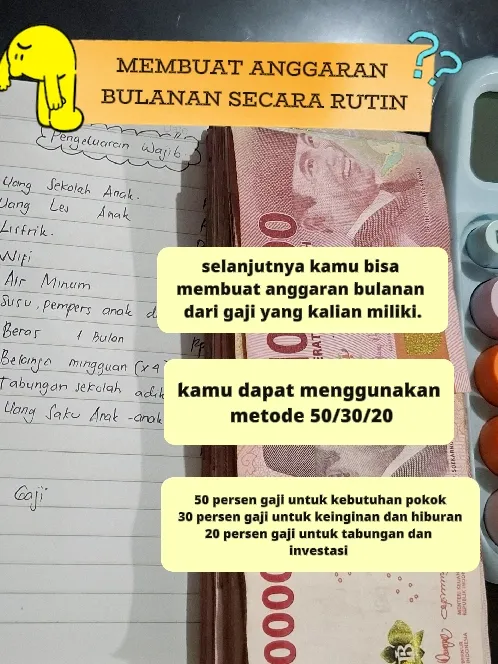 MEMBUAT ANGGARAN
BULANAN SECARA RUTIN
??
Pengeluaran Wajib
Uang Sekolah Anak.
Uang Les Anak
Listrik.
Wifi
Air Minum
Susu, Pempers anak
Beras 1 Bulan
Belanja mingguan (x4
Tabungan sekolah adik
Uang Saku Anak-anak
Gaji
selanjutnya kamu bisa
membuat anggaran bulanan
dari gaji yang kalian miliki.
kamu dapat menggunakan
metode 50/30/20
50 persen gaji untuk kebutuhan pokok
30 persen gaji untuk keinginan dan hiburan
20 persen gaji untuk tabungan dan
investasi